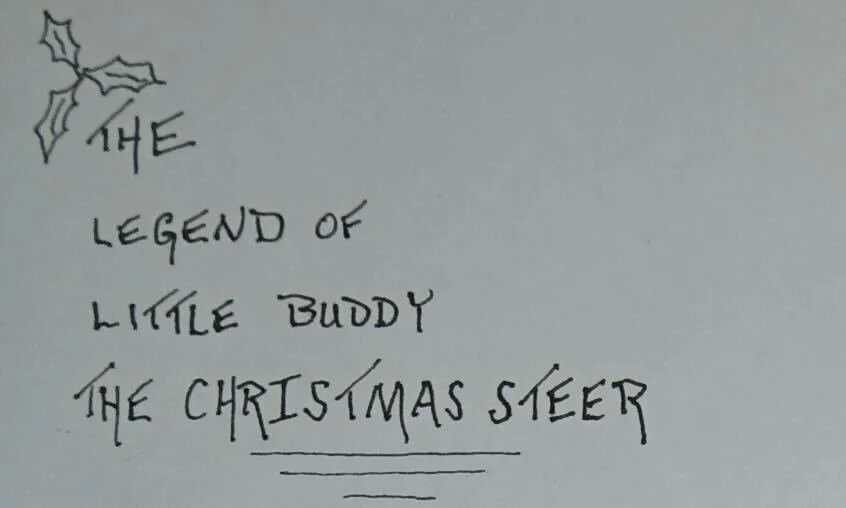 THE
LEGEND OF
LITTLE BUDDY
THE CHRISTMAS STEER